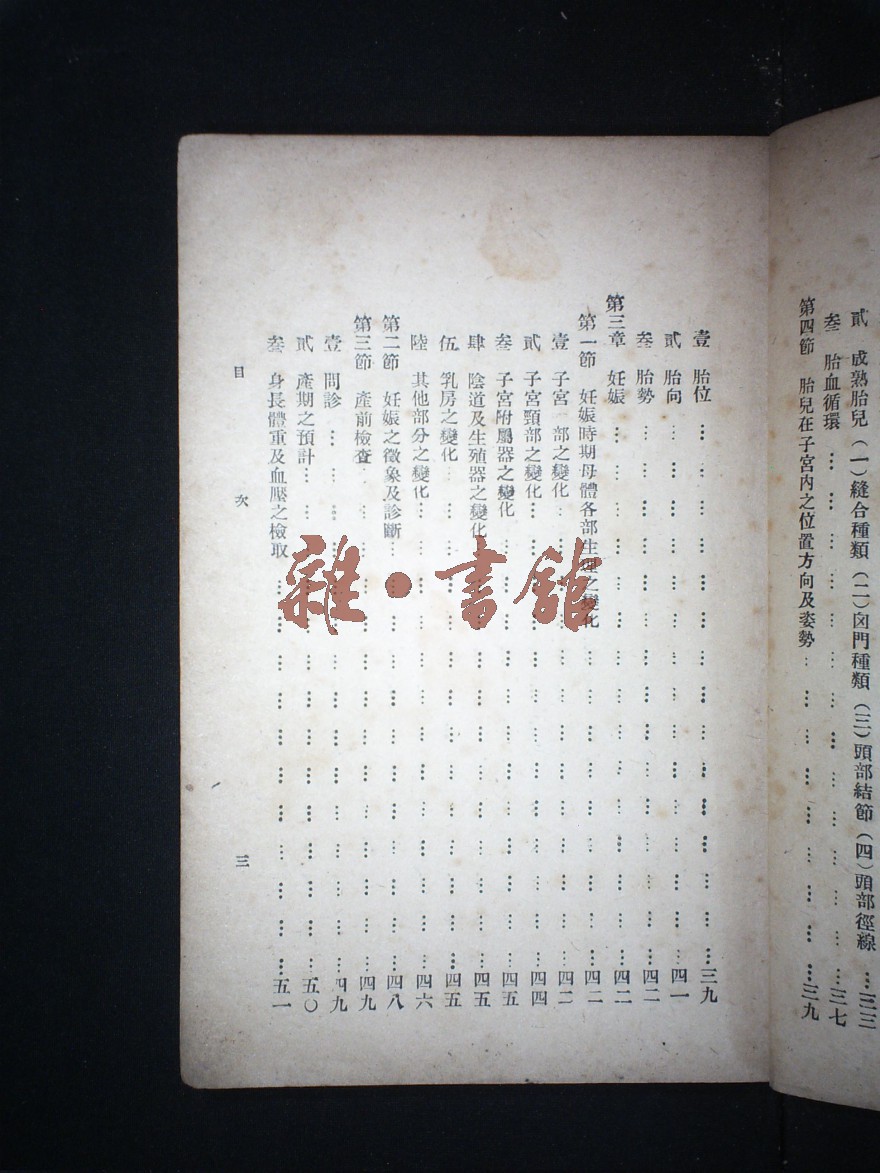 貳 成熟胎兒(一)縫合種類(二)囟門種類(三)頭部結節(四)頭部徑線 …三三
叁 胎血循環 … … … … … … … … … …三七
第四節 胎兒在子宮內之位置方向及姿勢 … … … … … …三九
壹 胎位 … … … … … … … … … …三九
貳 胎向 … … … … … … … … … …四一
叁 胎勢 … … … … … … … … … …四二
第三章 妊娠 … … … … … … … … … …四二
第一節 妊娠時期母體各部生理之變化 … … … … … …四二
壹 子宮一部之變化 … … … … … … … …四二
貳 子宮頸部之變化 … … … … … … … …四四
叁 子宮附屬器之變化 … … … … … … … …四五
肆 陰道及生殖器之變化 … … … … … … …四五
伍 乳房之變化 … … … … … … … … …四五
陸 其他部分之變化 … … … … … … … …四六
第二節 妊娠之徵象及診斷 … … … … … … …四八
第三節 產前檢查 … … … … … … … … …四九
壹 問診 … … … … … … … … … …四九
貳 產期之預計 … … … … … … … … …五〇
叁 身長體重及血壓之檢取 … … … … … … …五一
目 次 三
雜・書館